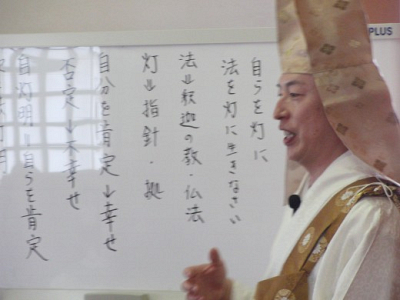 自らを灯に
法を灯に生きなさい
法⇓釈迦の教・仏法
灯⇓指針・拠
自分を肯定↓幸せ
不否定↓不幸せ
自灯明＝自らを肯定
PLUS